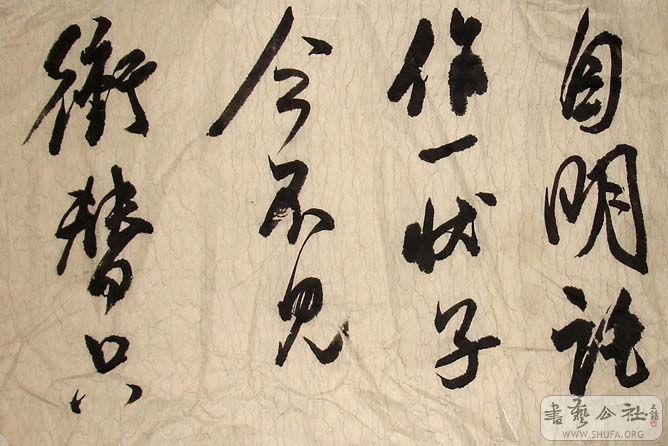 自明記
作一状子
今不見
衛替只
書艺公社
WWW.SHUFA.ORG